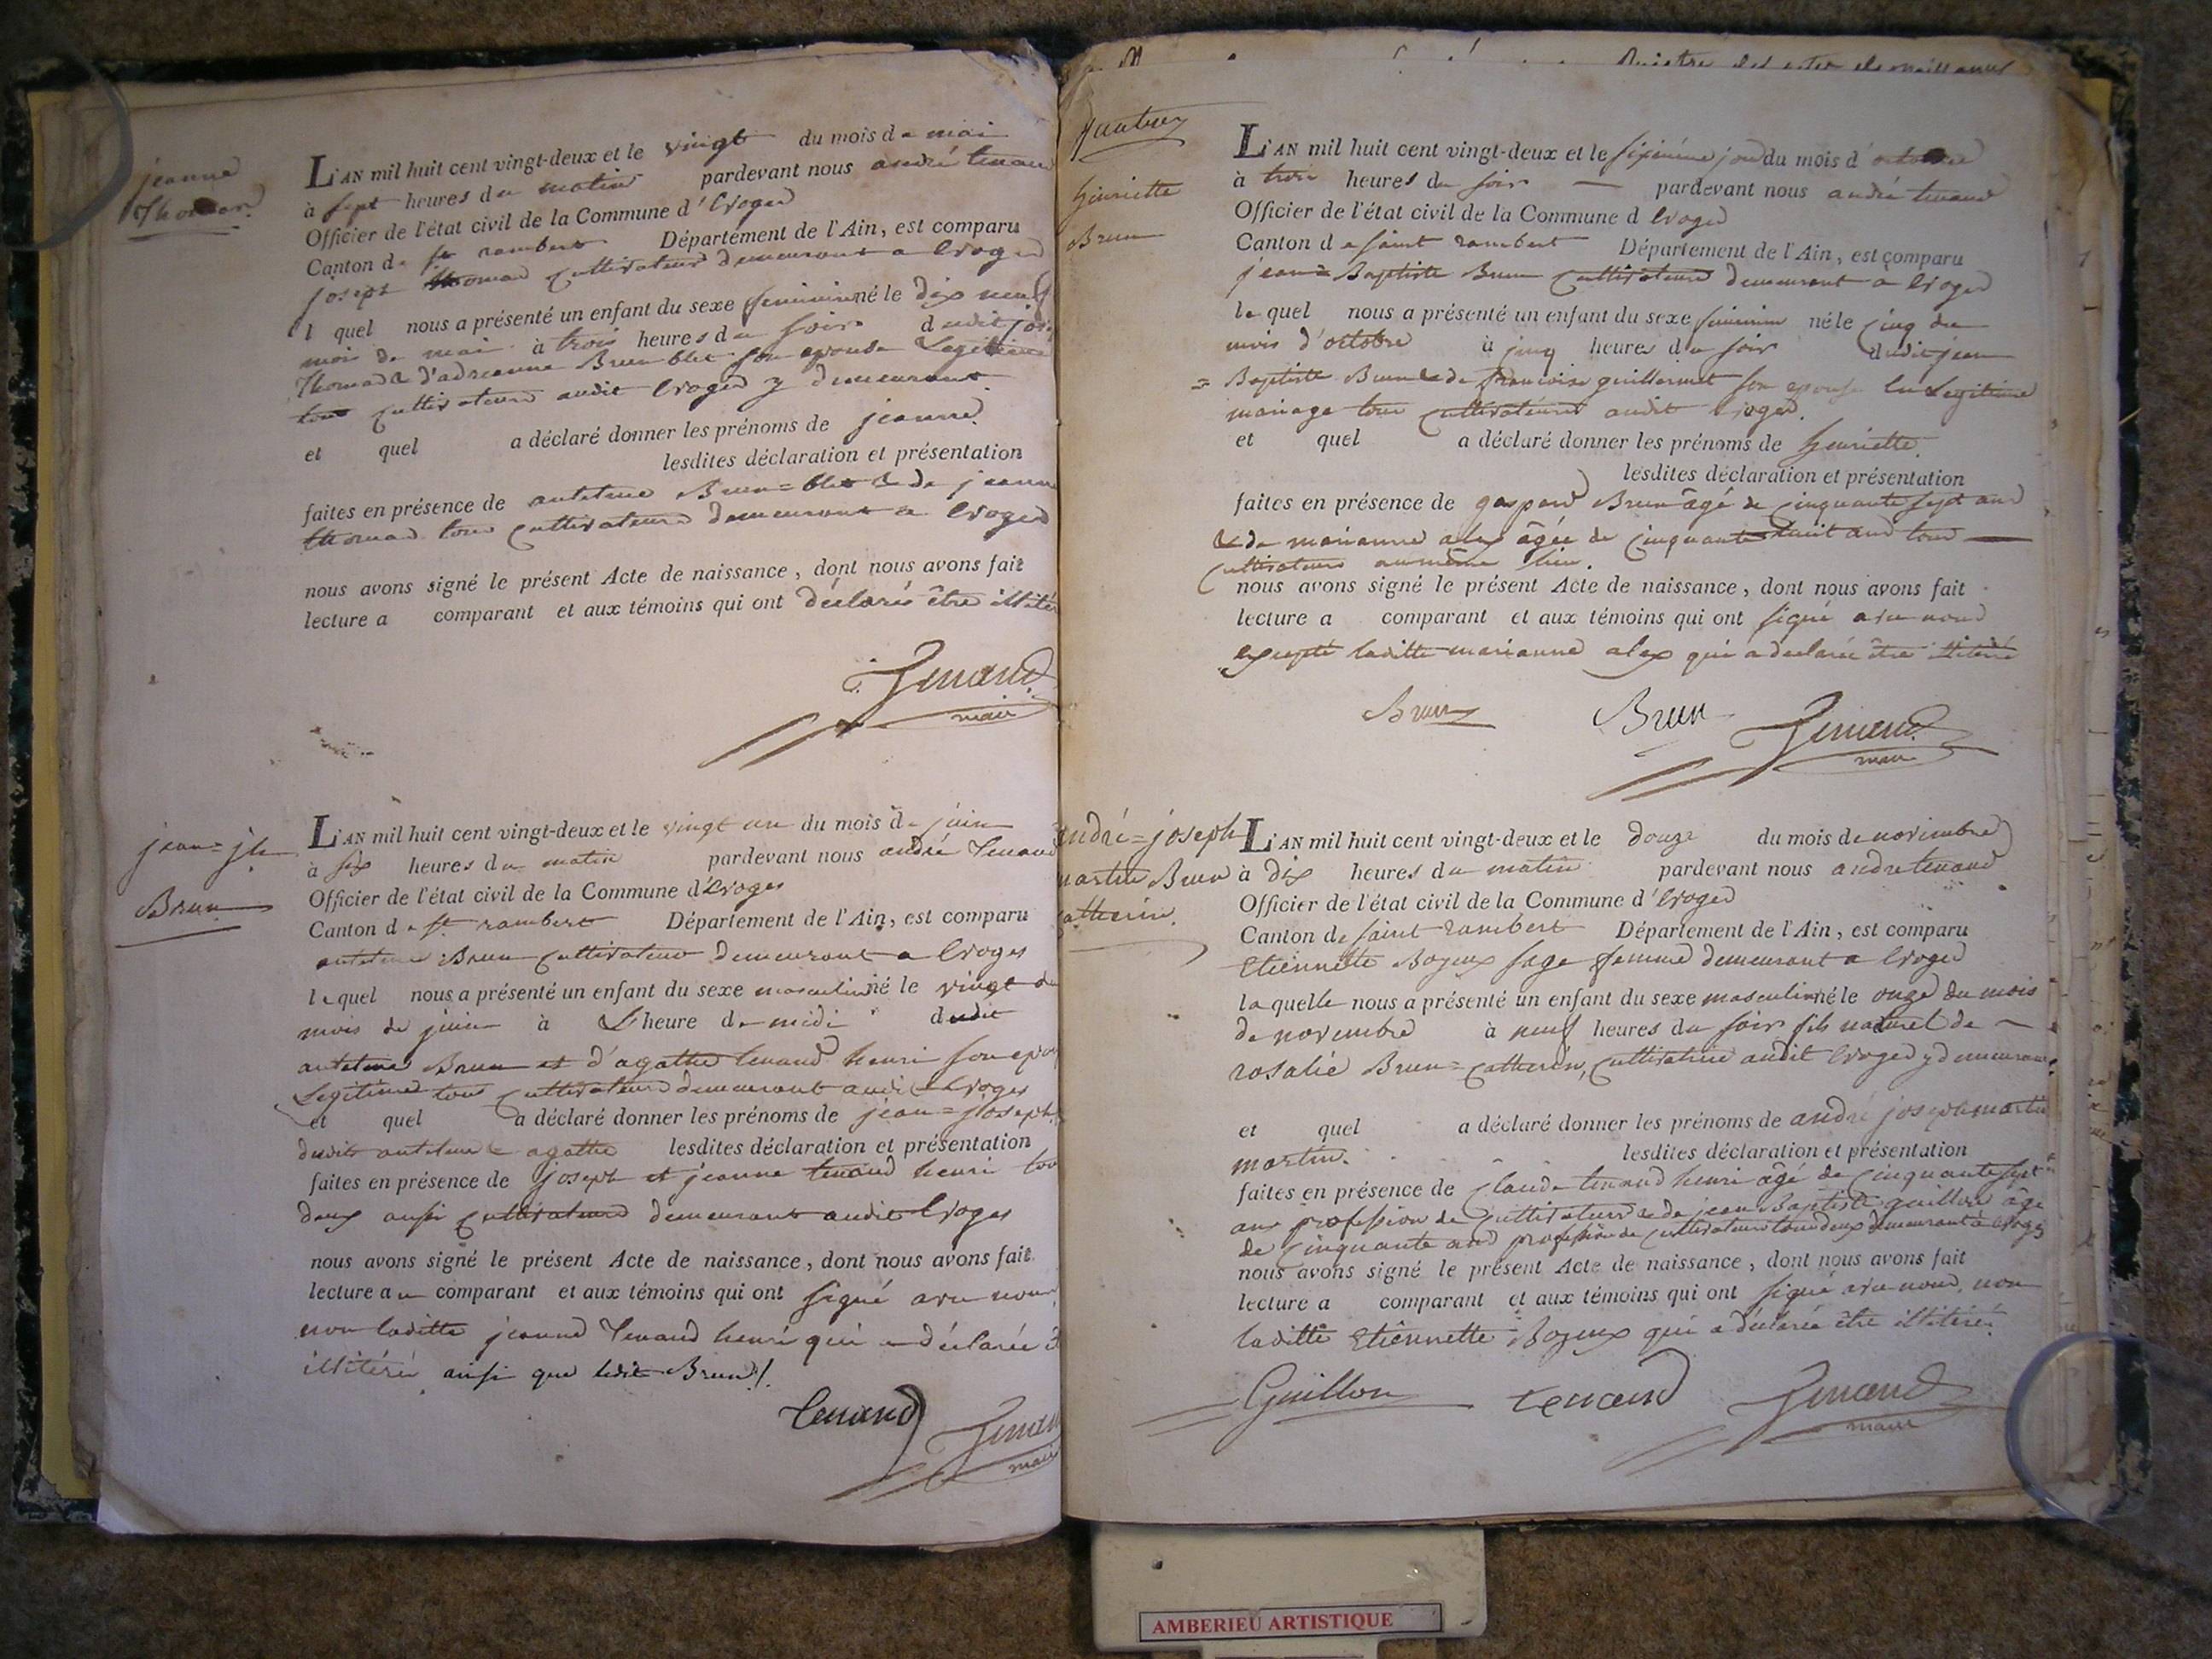 jeanne
Thomas.
L'AN mil huit cent vingt-deux et le vingt du mois de mai
à sept heures du matin pardevant nous andré tenand
Officier de l'état civil de la Commune d'Evoges
Canton de st rambert Département de l'Ain, est comparu
joseph thomas cultivateur demeurant a Evoges
l quel nous a présenté un enfant du sexe feminin né le dix neuf
mois de mai à trois heures du soir dudit
Thomas & d'adrienne Brun blet son epouse Legitime
tous cultivateurs audit Evoges y demeurant
et quel a déclaré donner les prénoms de jeanne.
lesdites déclaration et présentation
faites en présence de antelme Brun=blet & de jeanne
thomas tous cultivateurs demeurant a Evoges
nous avons signé le présent Acte de naissance, dont nous avons fait
lecture a comparant et aux témoins qui ont déclarés être
Tenand
maire
jean=jh
Brun
L'AN mil huit cent vingt-deux et le vingt un du mois de juin
à six heures du matin pardevant nous andré Tenand
Officier de l'état civil de la Commune d'Evoges
Canton de st rambert Département de l'Ain, est comparu
antelme Brun cultivateur demeurant a Evoges
le quel nous a présenté un enfant du sexe masculin né le vingt du
mois de juin à L'heure de midi dudit
antelme Brun et d'agathe tenand henri son
Legitime tous cultivateurs demeurant audit Evoges
et quel a déclaré donner les prénoms de jean=joseph
dudit antelme & agathe lesdites déclaration et présentation
faites en présence de joseph et jeanne tenand henri
deux aussi cultivateurs demeurant audit Evoges
nous avons signé le présent Acte de naissance, dont nous avons fait
lecture au comparant et aux témoins qui ont signé avec nous
non laditte jeanne Tenand henri qui a déclarée
illitérée ainsi que ledit Brun ./.
Tenand
Tenand
maire
Registre des actes de naissances
henriette
Brun
L'AN mil huit cent vingt-deux et le sixième jour du mois d'octobre
à trois heures du soir pardevant nous andré tenand
Officier de l'état civil de la Commune d Evoges
Canton de saint rambert Département de l'Ain, est comparu
jean=Baptiste Brun cultivateur demeurant à Evoges
le quel nous a présenté un enfant du sexe feminin né le cinq du
mois d'octobre à cinq heures du soir dudit jean
= Baptiste Brun & de francoise guillermet son epouse en Legitime
mariage tous cultivateurs audit Evoges.
et quel a déclaré donner les prénoms de henriette.
lesdites déclaration et présentation
faites en présence de gaspard Brun âgé de cinquante sept ans
& de marianne alex âgée de cinquante huit ans tous
cultivateurs au même lieu.
nous avons signé le présent Acte de naissance, dont nous avons fait
lecture a comparant et aux témoins qui ont signé avec nous
excepté laditte marianne alex qui a déclarée être illitéré
Brun
Brun
Tenand
maire
andré=joseph
martin Brun
catherin.
L'AN mil huit cent vingt-deux et le douze du mois de novembre
à dix heures du matin pardevant nous andre tenand
Officier de l'état civil de la Commune d'Evoges
Canton de saint rambert Département de l'Ain, est comparu
Etiennette Bozeux sage femme demeurant a Evoges
la quelle nous a présenté un enfant du sexe masculin né le onze du mois
de novembre à neuf heures du soir fils naturel de
rosalie Brun=catherin, cultivatrice audit Evoges y demeurant
et quel a déclaré donner les prénoms de andré joseph martin
martin.
lesdites déclaration et présentation
faites en présence de claude tenand henri âgé de cinquante sept
ans profession de cultivateur & de jean Baptiste guillon âgé
de cinquante ans profession de cultivateur tous deux demeurant à Evoges
nous avons signé le présent Acte de naissance, dont nous avons fait
lecture a comparant et aux témoins qui ont signé avec nous, non
laditte Etiennette Bozeux qui a déclarée être illitérée.
Guillon
tenand
Tenand
maire
AMBERIEU ARTISTIQUE